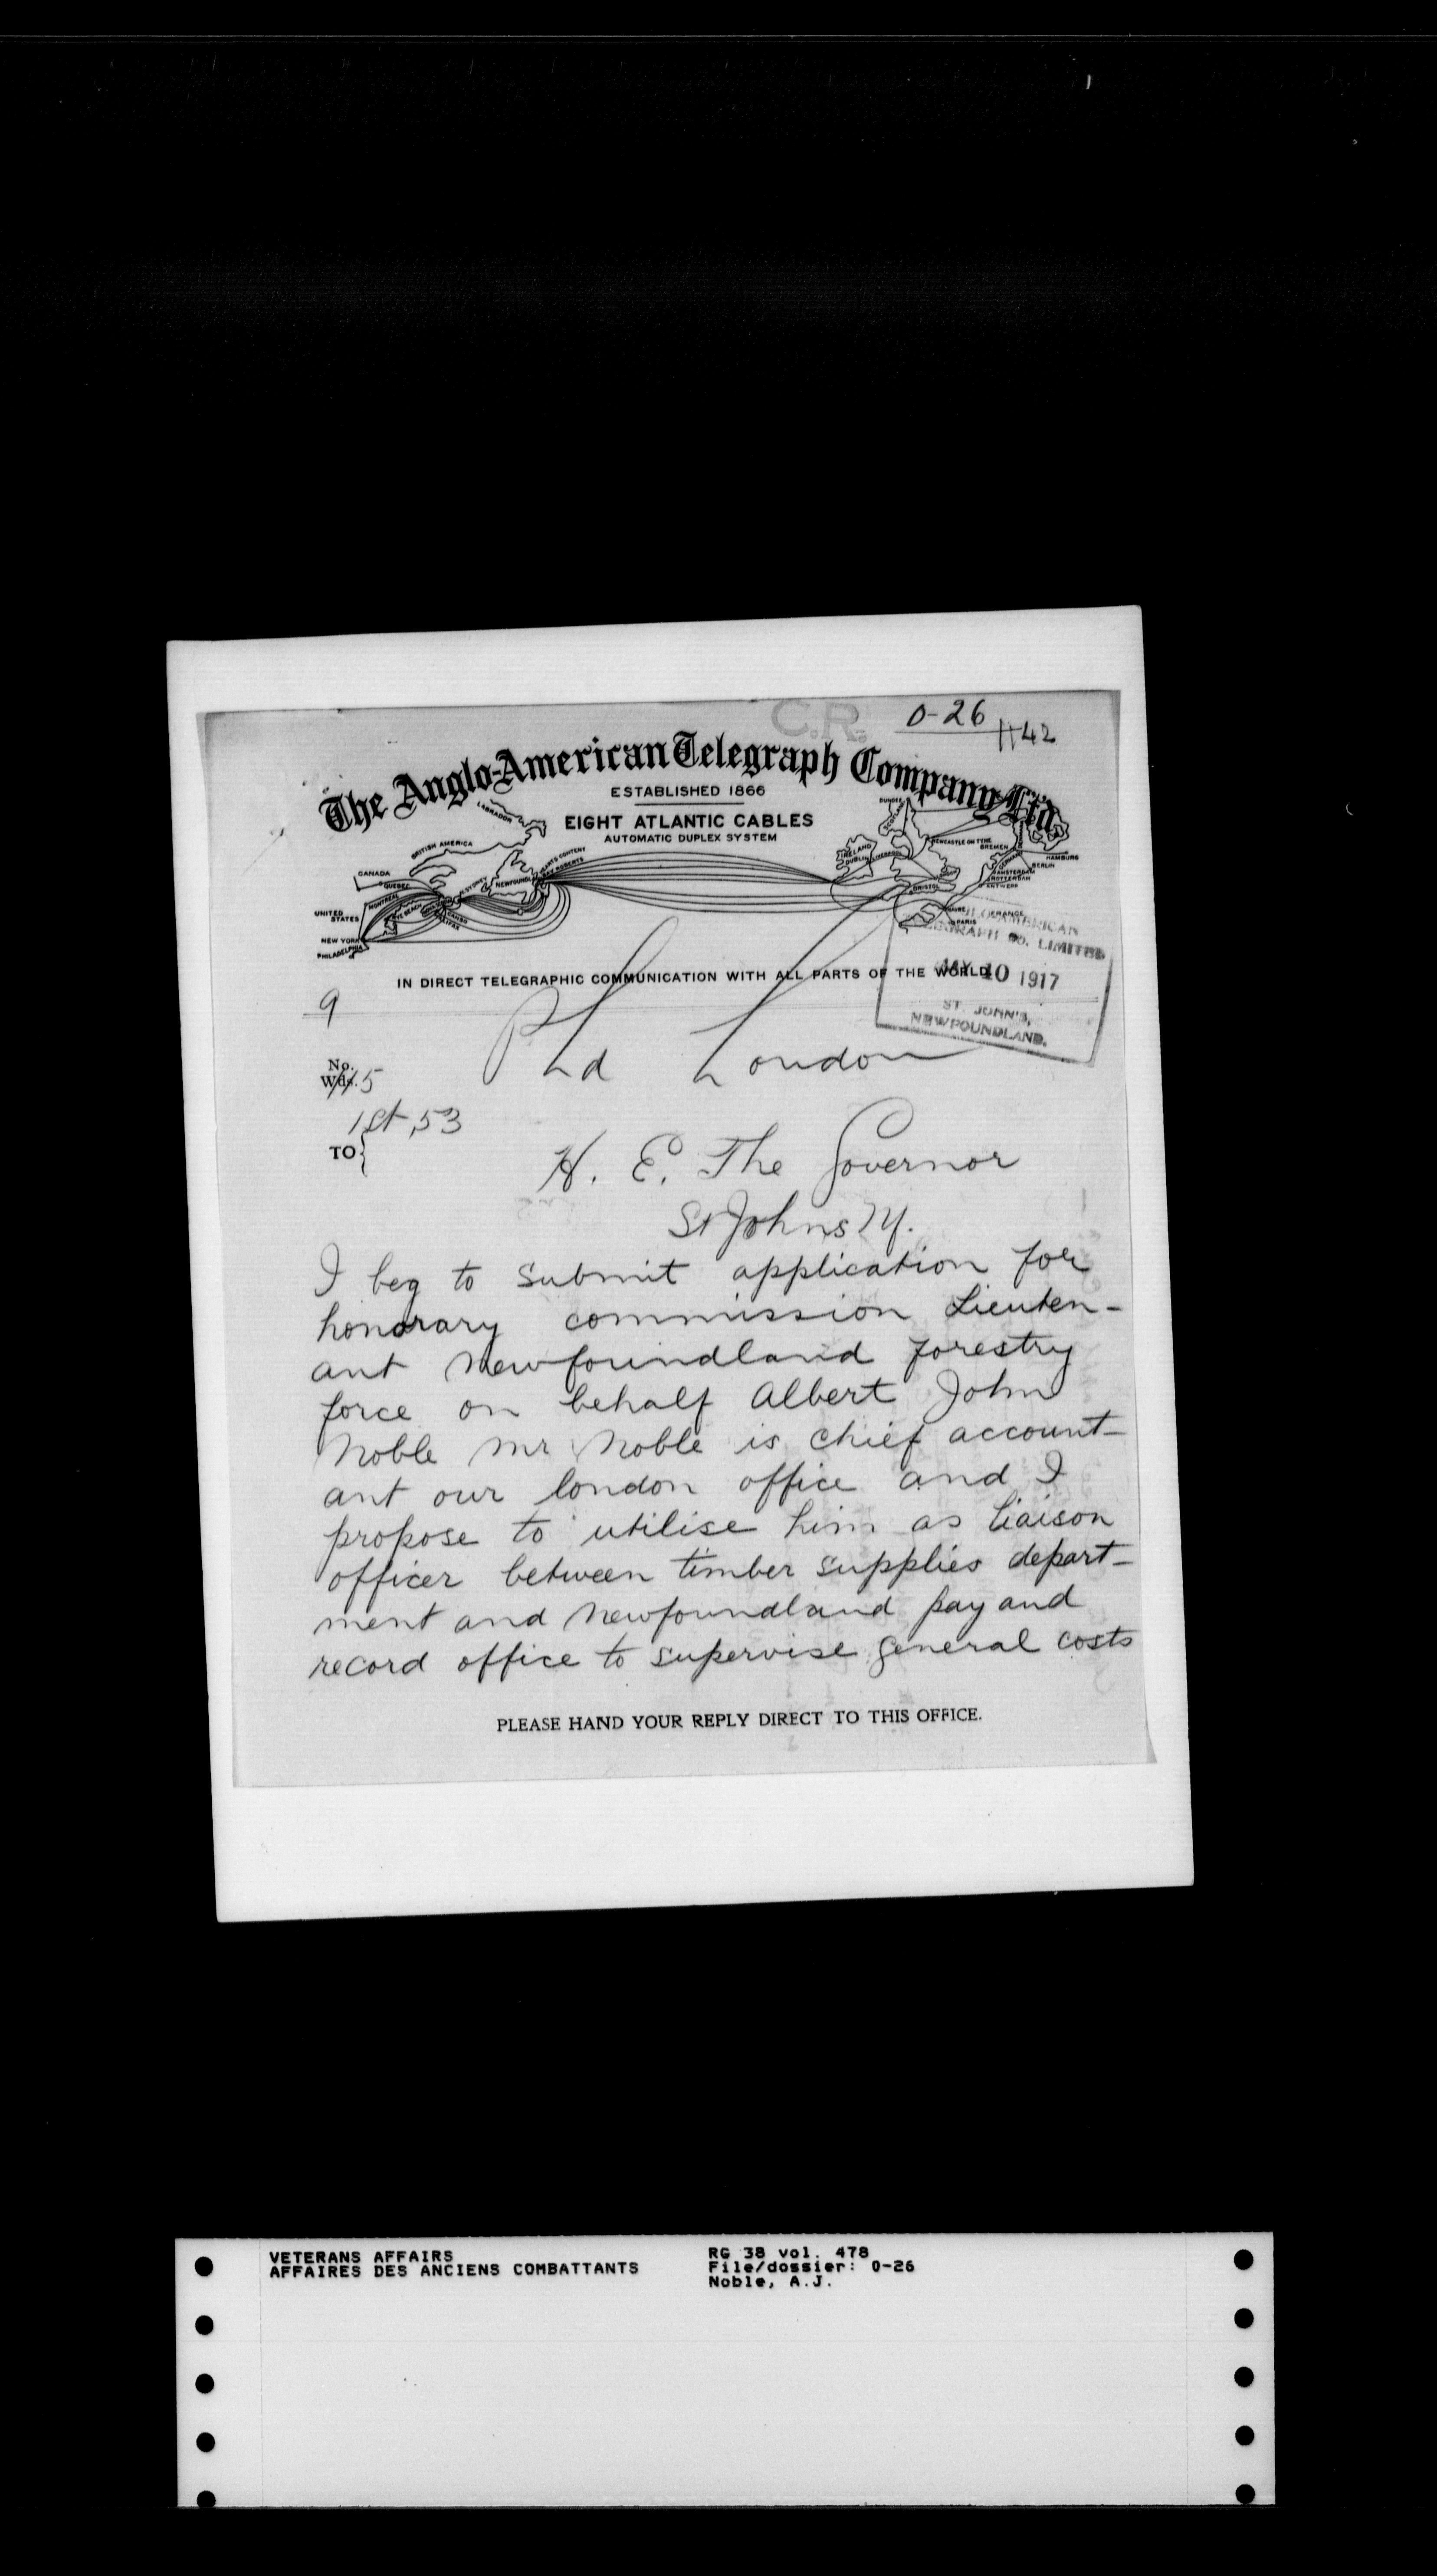 C.R. 0-26
1142
The Anglo-American Telegraph Company Ltd.
ESTABLISHED 1866
EIGHT ATLANTIC CABLES
AUTOMATIC DUPLEX SYSTEM
LABRADOR
BRITISH AMERICA
CANADA
QUEBEC
MONTREAL
UNITED STATES
NEW YORK
PHILADELPHIA
HALIFAX
NEWFOUNDLAND
IRELAND
DUBLIN
LIVERPOOL
DUNDEE
NEWCASTLE ON TYNE
BREMEN
HAMBURG
BERLIN
AMSTERDAM
ROTTERDAM
ANTWERP
BRISTOL
HAVRE
PARIS
FRANCE
IN DIRECT TELEGRAPHIC COMMUNICATION WITH ALL PARTS OF THE WORLD
ANGLO-AMERICAN
TELEGRAPH CO. LIMITED
MAY 10 1917
ST. JOHN'S,
NEWFOUNDLAND.
9
London
No.
Wds. 115
1st 53
TO
H. E. The Governor
St Johns Nf.
I beg to submit application for
honorary commission Lieuten-
ant Newfoundland forestry
force on behalf Albert John
Noble Mr Noble is chief account-
ant our london office and I
propose to utilise him as liaison
officer between timber supplies depart-
ment and Newfoundland pay and
record office to supervise general costs
PLEASE HAND YOUR REPLY DIRECT TO THIS OFFICE.
VETERANS AFFAIRS
AFFAIRES DES ANCIENS COMBATTANTS
RG 38 vol. 478
File/dossier: 0-26
Noble, A.J.